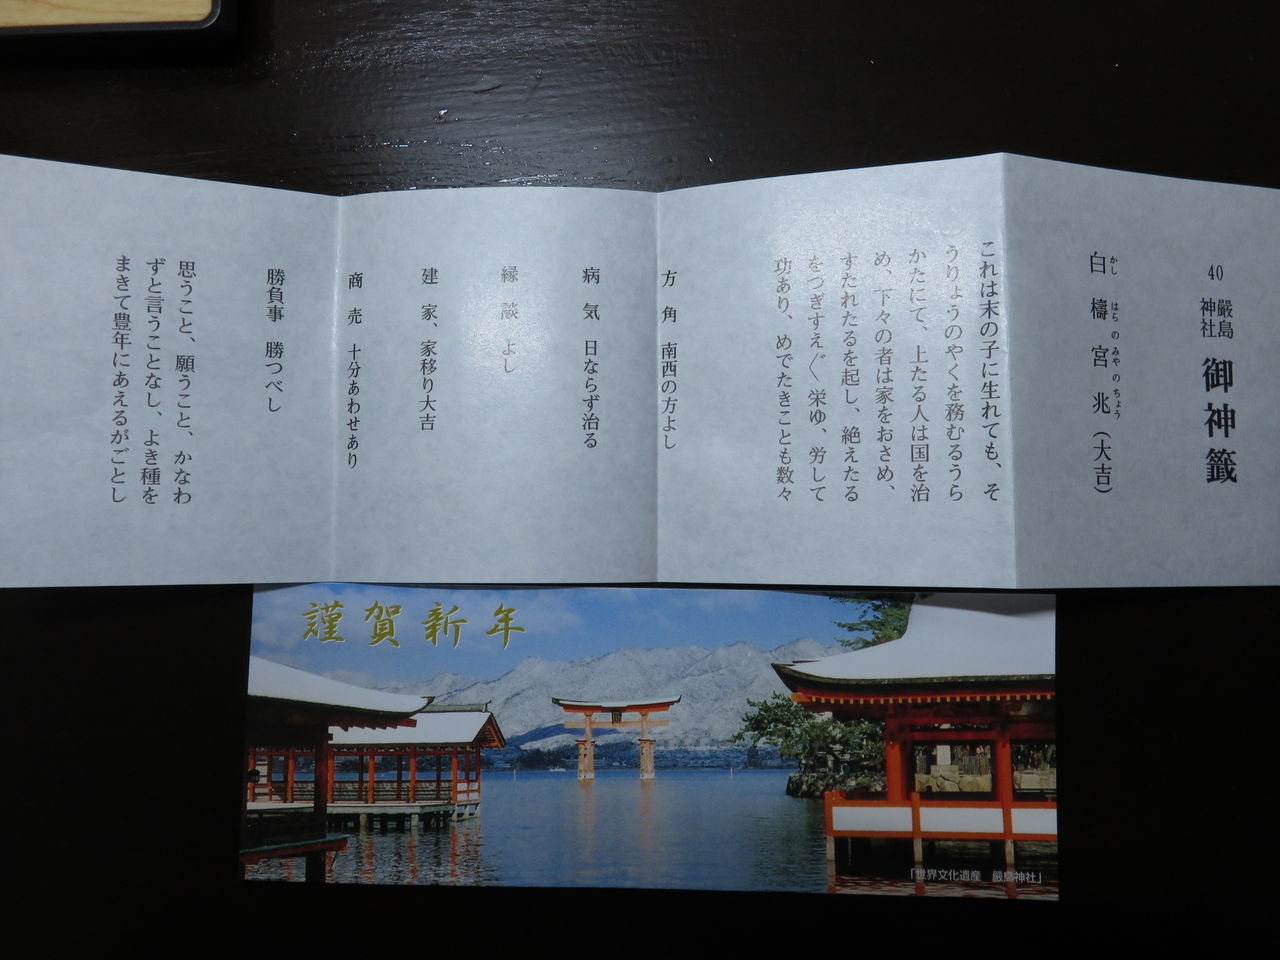 40 厳島神社 御神籤
白檮宮兆（大吉）
かしはらのみやのちょう
これは末の子に生れても、そ
うりょうのやくを務むるうら
かたにて、上たる人は国を治
め、下々の者は家をおさめ、
すたれたるを起し、絶えたる
をつぎすえ〴〵栄ゆ、労して
功あり、めでたきことも数々
方角 南西の方よし
病気 日ならず治る
縁談 よし
建家、家移り大吉
商売 十分あわせあり
勝負事 勝つべし
思うこと、願うこと、かなわ
ずと言うことなし、よき種を
まきて豊年にあえるがごとし
謹賀新年
「世界文化遺産 厳島神社」